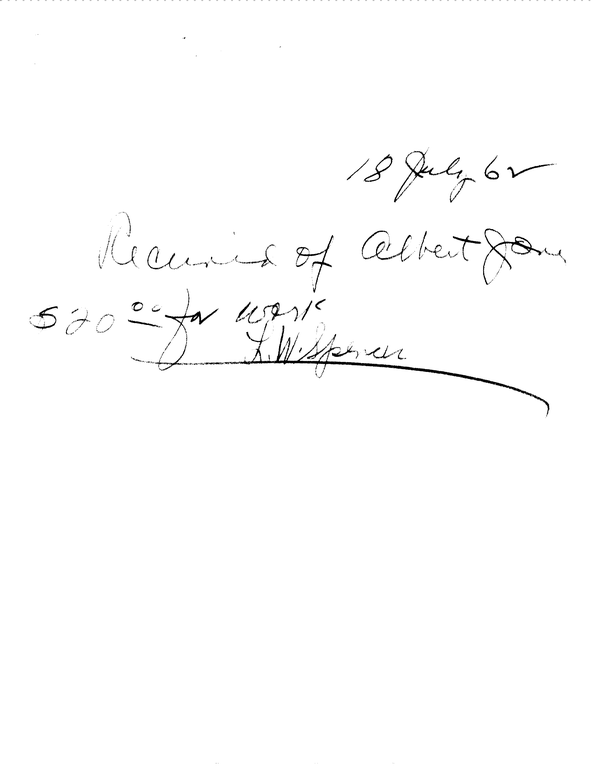 18 July 62
Received of Albert Jone
$20 00 for work
L.W. Spencer